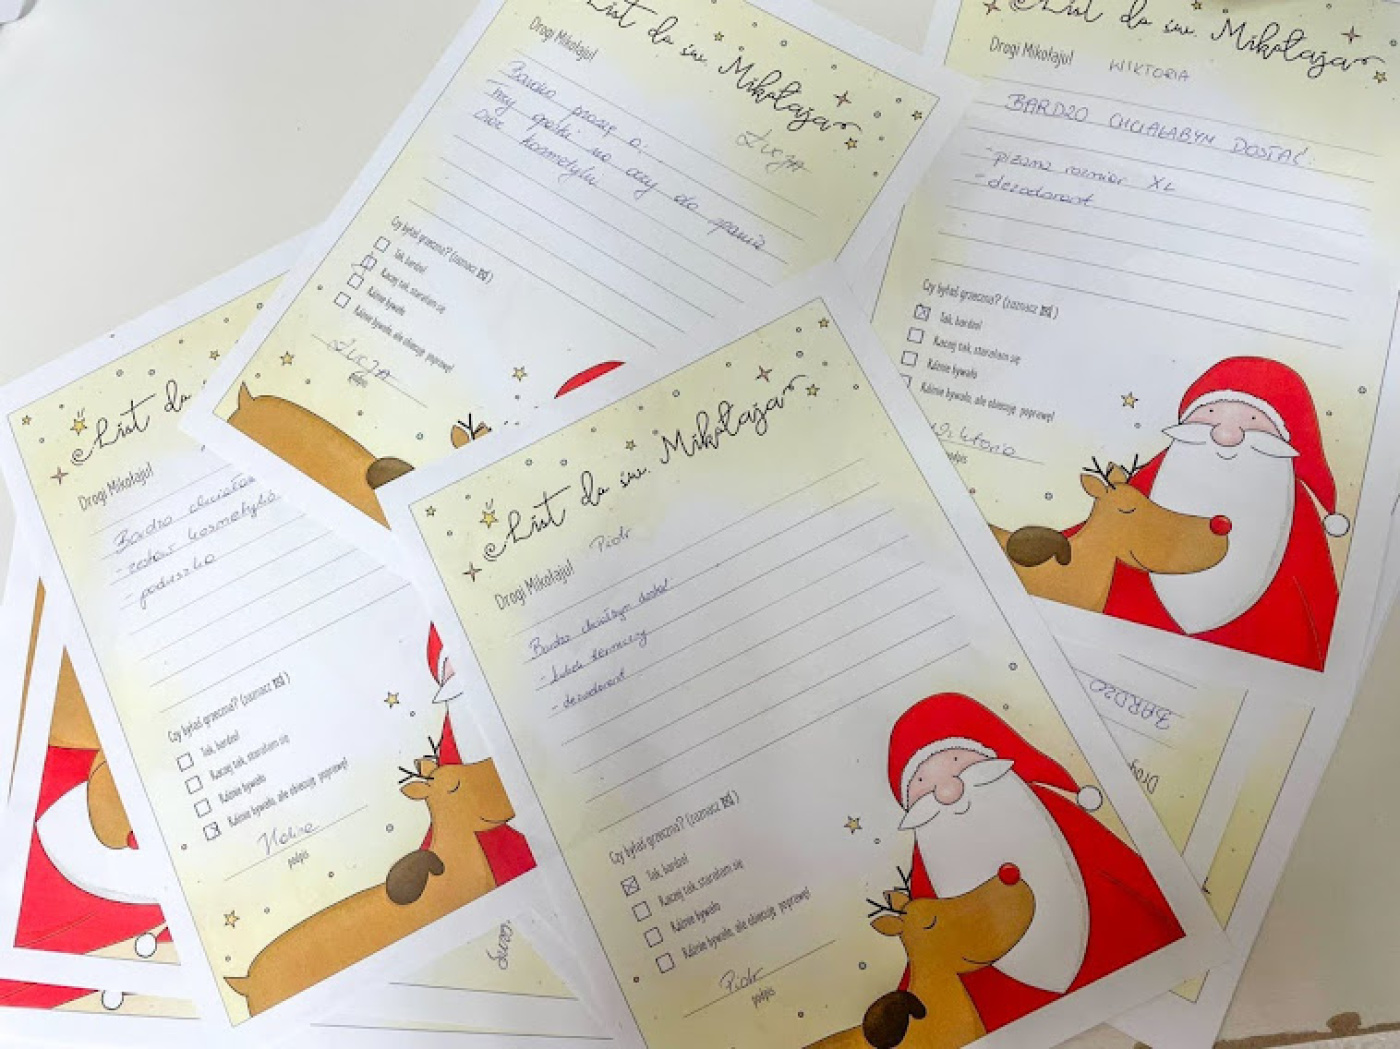 List do św. Mikołaja
Drogi Mikołaju!
Bardzo proszę o:
trzy opaski na oczy do spania
oraz kosmetyki
ŁUCJA
Czy byłaś grzeczna? (zaznacz ☒)
Tak, bardzo!
Raczej tak, starałam się
Różnie bywało
Różnie bywało, ale obiecuję poprawę!
ŁUCJA
podpis
List do św. Mikołaja
Drogi Mikołaju! WIKTORIA
BARDZO CHCIAŁABYM DOSTAĆ:
- piżama rozmiar XL
- dezodorant
Czy byłaś grzeczna? (zaznacz ☒)
Tak, bardzo!
Raczej tak, starałam się
Różnie bywało
Różnie bywało, ale obiecuję poprawę!
Wiktoria
podpis
List do
Drogi Mikołaju!
Bardzo chciała
- zestaw kosmetyków
- poduszka
Czy byłaś grzeczna? (zaznacz ☒)
Tak, bardzo!
Raczej tak, starałam się
Różnie bywało
Różnie bywało, ale obiecuję poprawę!
podpis
List do św. Mikołaja
Drogi Mikołaju! Piotr
Bardzo chciałbym dostać
- kubek termiczny
- dezodorant
Czy byłaś grzeczna? (zaznacz ☒)
Tak, bardzo!
Raczej tak, starałam się
Różnie bywało
Różnie bywało, ale obiecuję poprawę!
Piotr
podpis
BARDZO
Drog